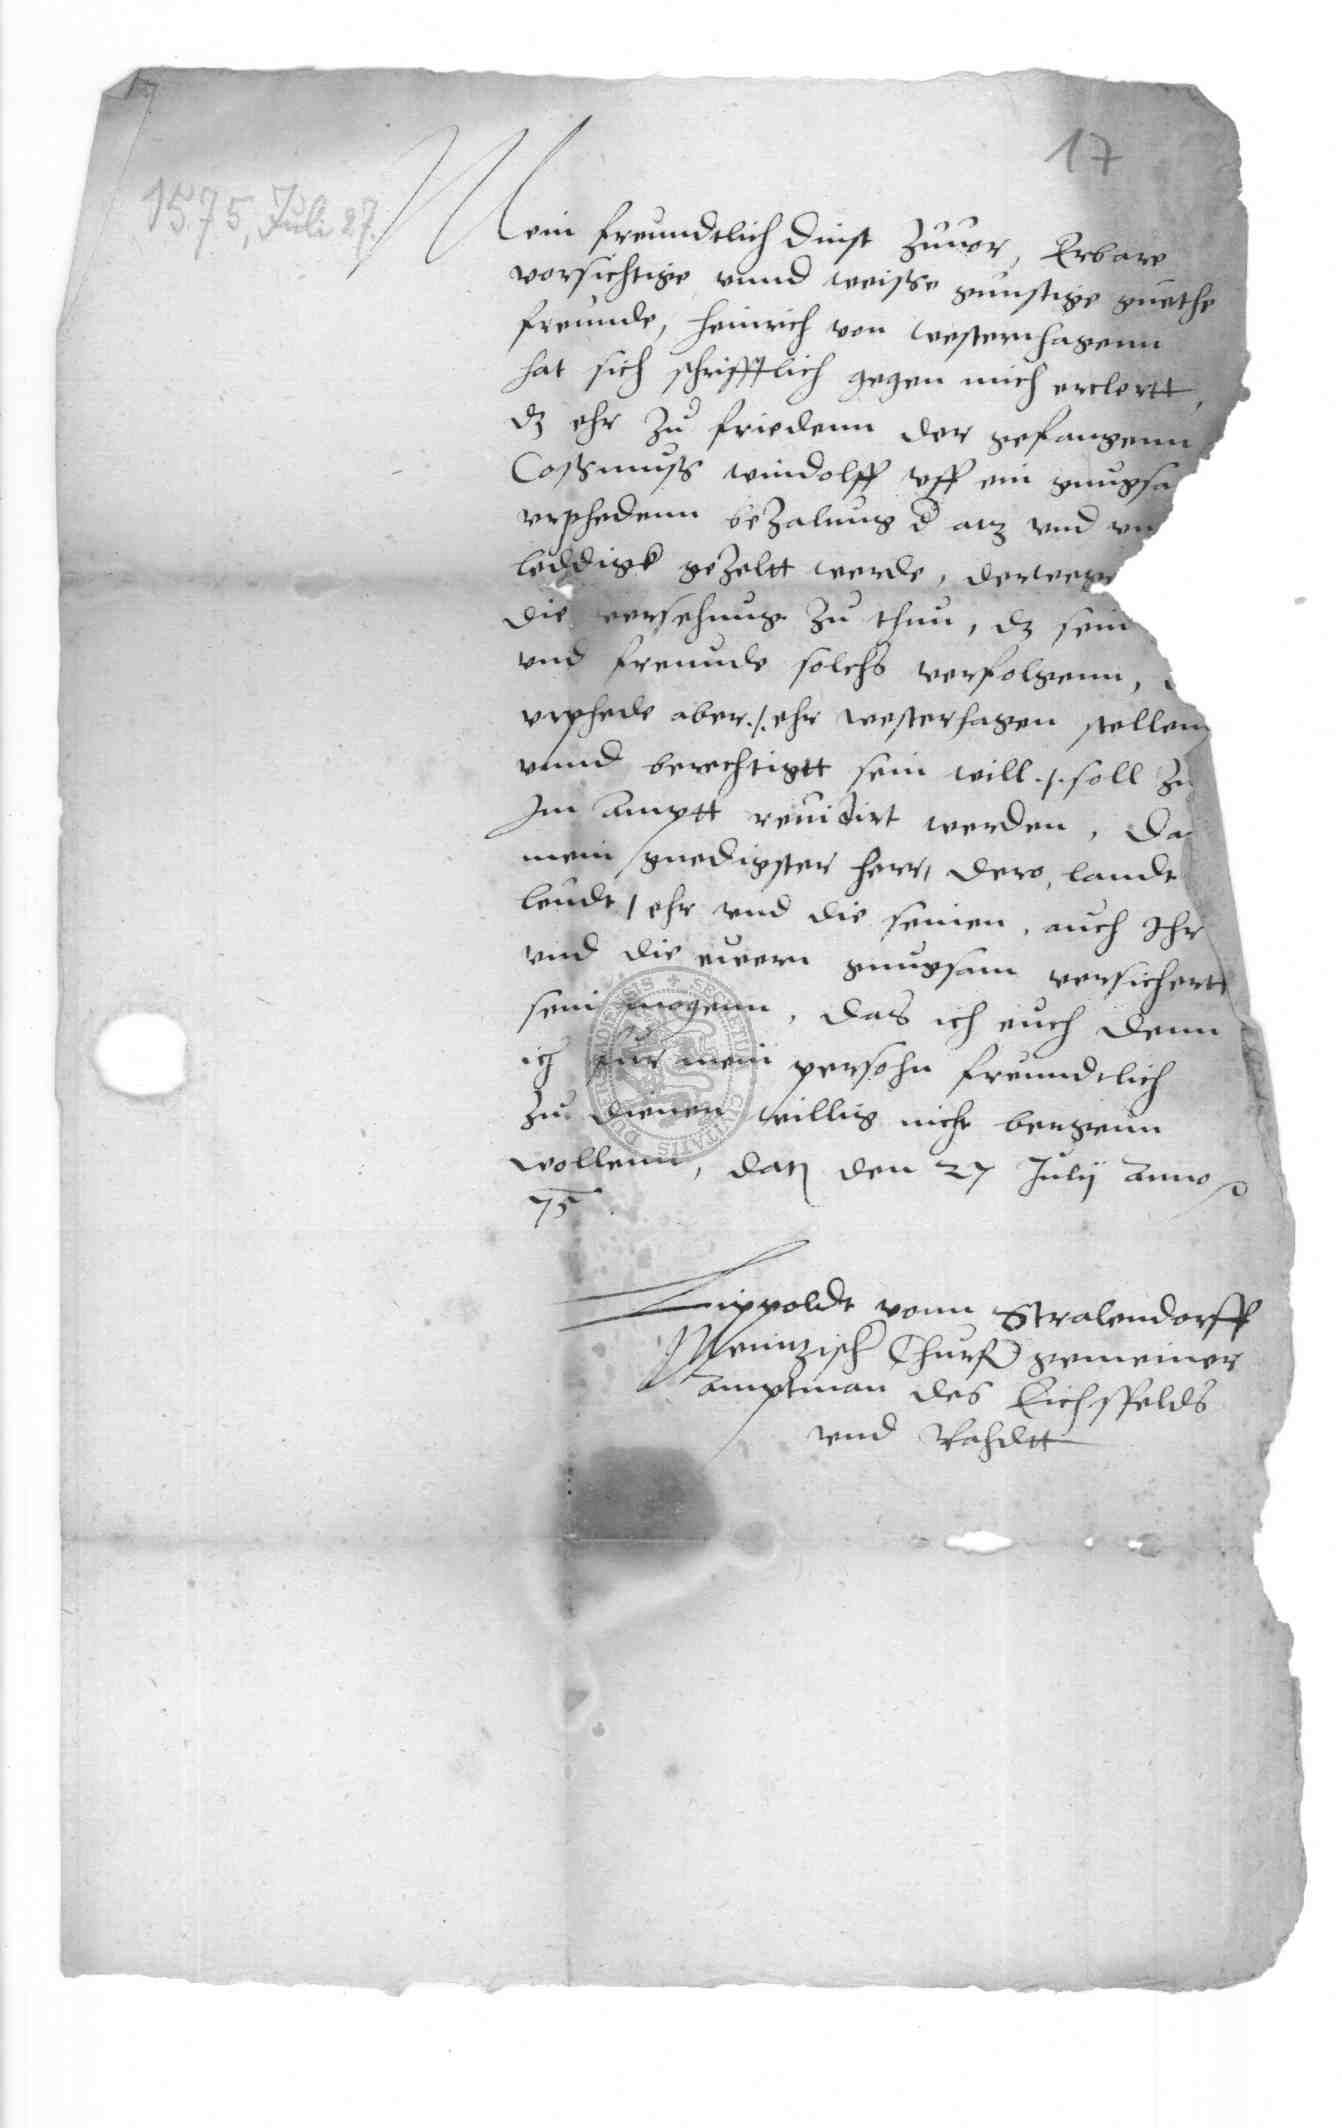 17
1575, Juli 27.
Mein freundtlich dinst zuuor, Erbare
vorsichtige vnnd weisse gunstige guethe
freunde, Heinrich von westernhagenn
hat sich schrifftlich gegen mich erclertt,
dz ehr zu friedenn der gefangenn
Cossmuss windolff vff ein gnugsa
vrphedenn bezalung d atz vnd vn
leddigk gezeltt werde, derwege
die versehung zu thun, dz sein
vnd freunde solchs verfolgenn,
vrphede aber ./. ehr westerhagen stellenn
vnnd berechtigtt sein will ./. soll zu
Im Amptt reuidirt werden, Da
mein gnedigster herr, dero, landt
leudt, ehr vnd die seinen, auch Ihr
vnd die euern gnugsam versichertt
sein mogenn, das ich euch denn
ich fur mein persohn freundtlich
zu dienen willig nicht bergenn
wollenn, dat den 27 Julij Anno
75
Lippoldt vonn Stralendorff
Meintzisch Churf gemeiner
Amptman des Eichsfelds
vnd Rahdtt
SECRETUM CIVITATIS